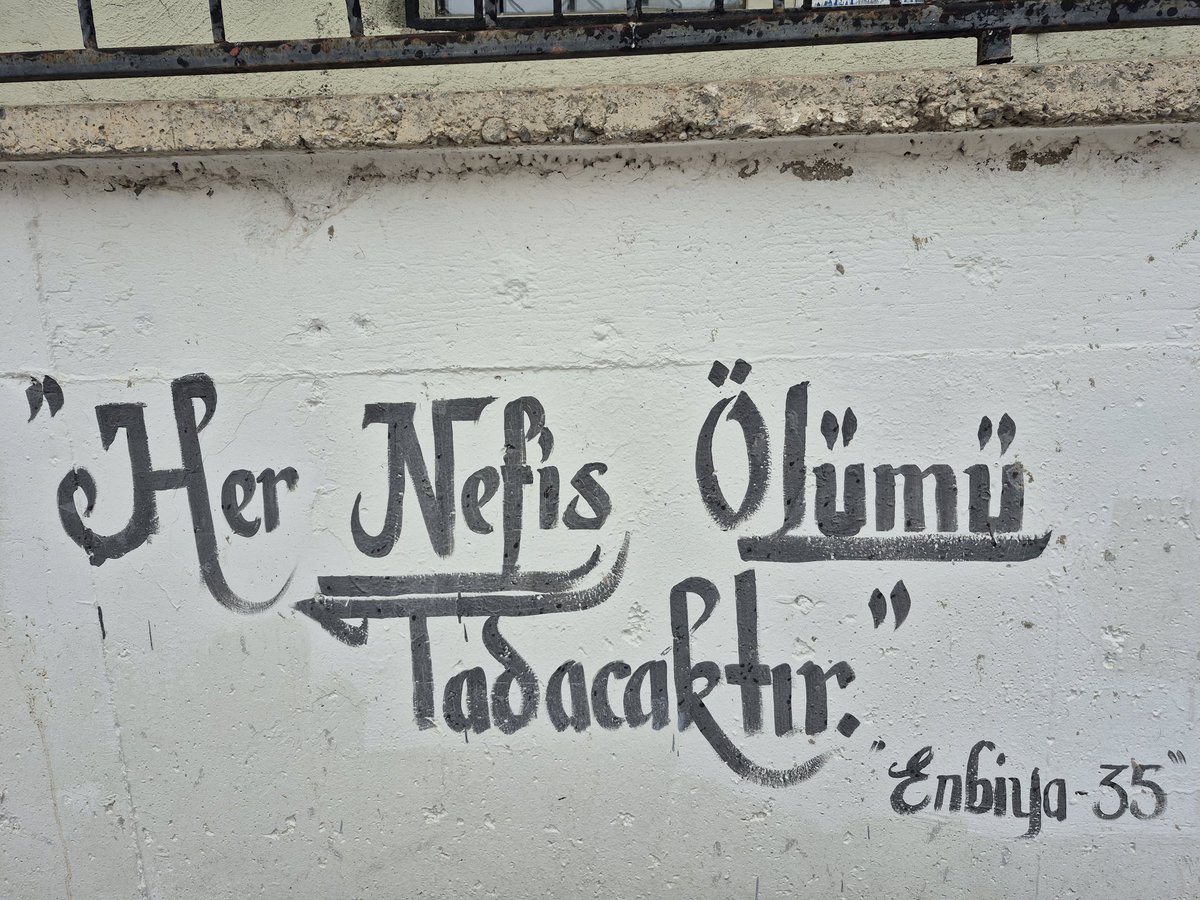 "Her Nefis Ölümü
Tadacaktır."
"Enbiya - 35"